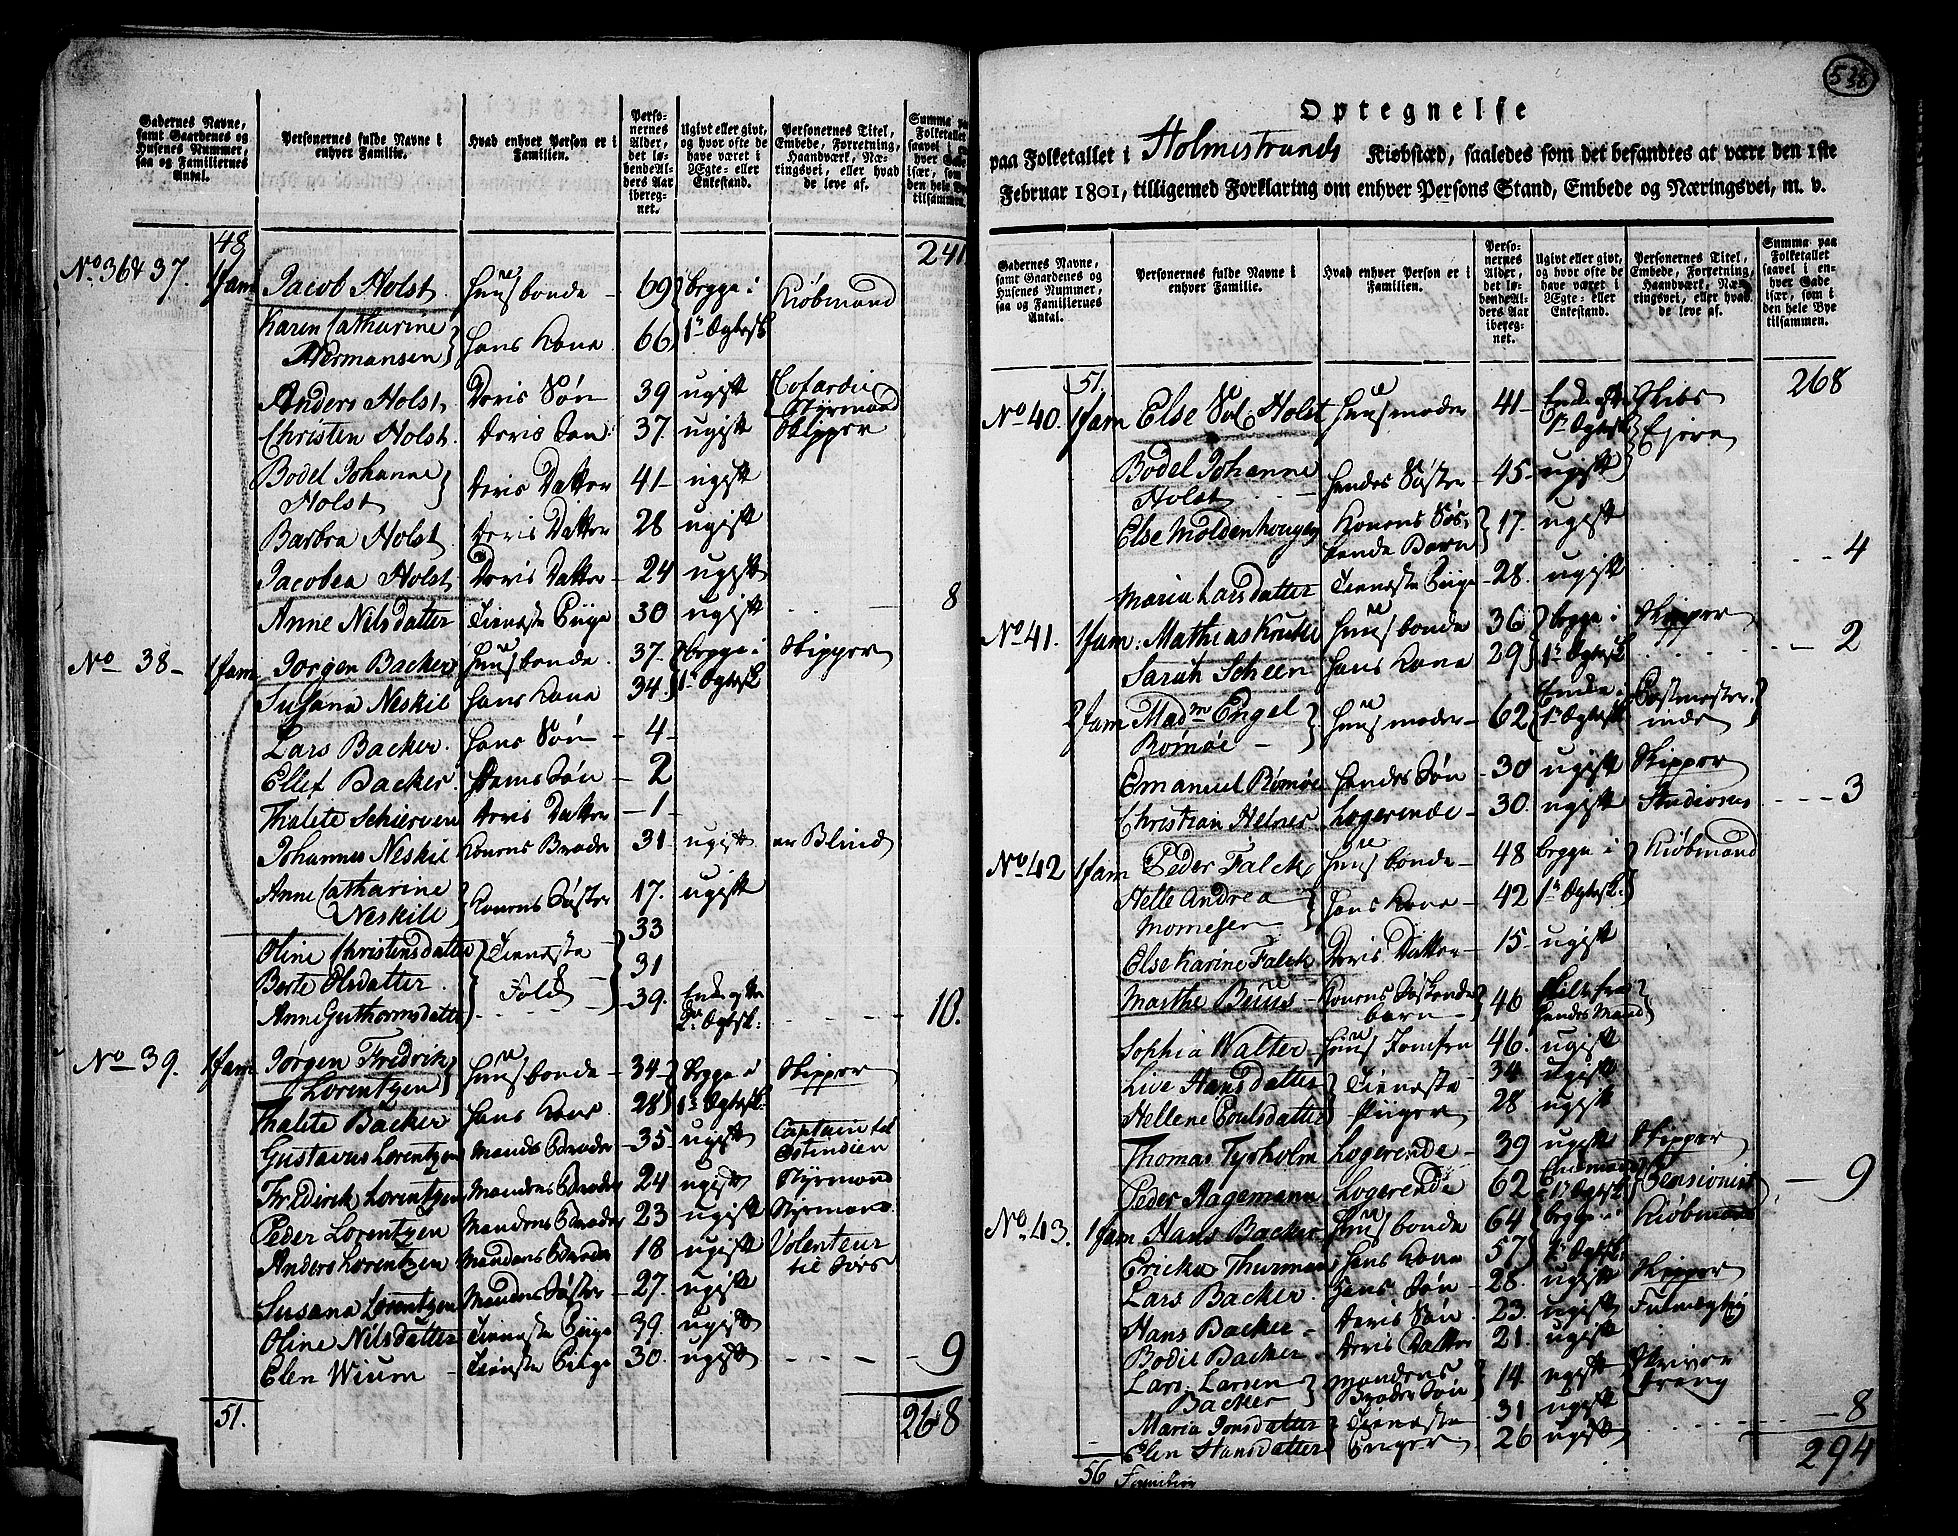 538
Gadernes Navne,
samt Gaardenes og
Husenes Nummer,
saa og Familiernes
Antal.
Personernes fulde Navne i
enhver Familie.
Hvad enhver Person er i
Familien.
Perso-
nernes
Alder,
det lø-
bende Al-
ders Aar
iberegnet.
Ugivt eller givt,
og hvor ofte de
have været i
Ægte- eller
Enkestand.
Personernes Titel,
Embede, Forretning,
Haandværk, Næ-
ringsvei, eller hvad
de leve af.
Summa paa
Folketallet
48 241
No 36 & 37. 1 fam Jacob Holst Huusbonde 69 begge i Kiøbmand
Karen Catharine
Hermansen Hans Kone 66 1te Ægtesk
Anders Holst Deris Søn 39 ugift Cofardie
Styrmand
Christen Holst Deris Søn 37 ugift Skipper
Bodel Johanne
Holst Deris Datter 41 ugift
Barbra Holst Deris Datter 28 ugift
Jacobea Holst Deris Datter 24 ugift
Anne Nilsdatter Tieneste Piige 30 ugift 8
No 38 1 fam Jørgen Backer Huusbonde 37 begge i Skipper
Susana Neskil Hans Kone 34 1te Ægtesk
Lars Backer Hans Søn 4
Ellef Backer Hans Søn 2
Thalete Schierven Deris Datter 1
Johannes Neskil Konens Broder 31 ugift er Blind
Anne Catharine
Neskill Konens Søster 17. ugift
Oline Christensdatter Tieneste 33
Berte Olsdatter Folk 31
Anne Guthormsdatter 39. Enke efter
2det Ægtesk: 10.
No 39. 1 fam Jørgen Fredrik
Lorentzen Huusbonde 34 begge i Skipper
Thalete Backer Hans Kone 28 1te Ægtesk:
Gustavus Lorentzen Mands Broder 35 ugift Captain til
Ostindien
Fridirich Lorentzen Mandens Broder 24 ugift Styrmand
Peder Lorentzen Mandens Broder 23 ugift Styrmand
Anders Lorentzen Mandens Broder 18 ugift Volenteur
til Søes
Susana Lorentzen Mandens Søster 27. ugift
Oline Nilsdatter Tieneste Piige 39. ugift
Elen Wium Tieneste Piige 30. ugift 9
51. 268
Optegnelse
paa Folketallet i Holmestrands Kiøbstæd, saaledes som det befandtes at være den 1ste
Februar 1801, tilligemed Forklaring om enhver Persons Stand, Embede og Næringsvei, m. v.
Gadernes Navne,
samt Gaardenes og
Husenes Nummer,
saa og Familiernes
Antal.
Personernes fulde Navne i
enhver Familie.
Hvad enhver Person er i
Familien.
Perso-
nernes
Alder,
det lø-
bende Al-
ders Aar
ibereg-
net.
Ugivt eller givt,
og hvor ofte de
have været i
Ægte- eller
Enkestand.
Personernes Titel,
Embede, Forretning,
Haandværk, Næ-
ringsvei, eller hvad
de leve af.
Summa paa
Folketallet
saavel i en-
hver Gade
især, som i
den hele Bye
tilsammen.
51. 268
No 40. 1 fam Else Sal Holst Huusmoder 41 Enke efter Skibs
1te Ægtesk Ejere
Bodel Johanne
Holst Hendes Søster 45 ugift
Else Moldenhouger Konens Søs-
kende Barn 17. ugift
Maria Larsdatter Tieneste Piige 28. ugift 4
No 41. 1 fam. Mathias Kruke Huusbonde 36 begge i Skipper
Sarah Scheen Hans Kone 29 1te Ægtesk 2
2 fam Madm Engel
Romøe Huusmoder 62 Enke i
1te Ægtesk Postmester-
inde
Emanuel Romøe Hendes Søn 30 ugift Skipper
Christian Helnes Logerende 30. ugift Studiosus 3
No 42 1 fam Peder Falck Huusbonde 48 begge i Kiøbmand
Helle Andrea
Momesen Hans Kone 42 1te Ægtesk:
Else Karine Falck Deris Datter 15 ugift
Marthe Buus Konens Søskende
barn 46 skilt fra
Hendes Mand
Sophia Walter Huus Jomfru 46. ugift
Live Hansdatter Tieneste 34 ugift
Hellene Poulsdatter Piiger 28 ugift
Thomas Tyrholm Logerende 39 ugift Skipper
Peder Hagemann Logerende 62 Enkemand
1te Ægtesk Pensionist 9
No 43. 1 fam Hans Backer Huusbonde 64 begge i Kiøbmand
Ericka Thurman Hans Kone 57 1te Ægtesk:
Lars Backer Hans Søn 28 ugift Skipper
Hans Backer Deris Søn 23. ugift Fulmægtig
Bodil Backer Deris Datter 21. ugift
Lars Larsen
Backer Mandens
Broder Søn 14 ugift Skriver
Dreng
Maria Jonsdatter Tieneste 31 ugift
Elen Hansdatter Piiger 26 ugift 8
56 Familier 294